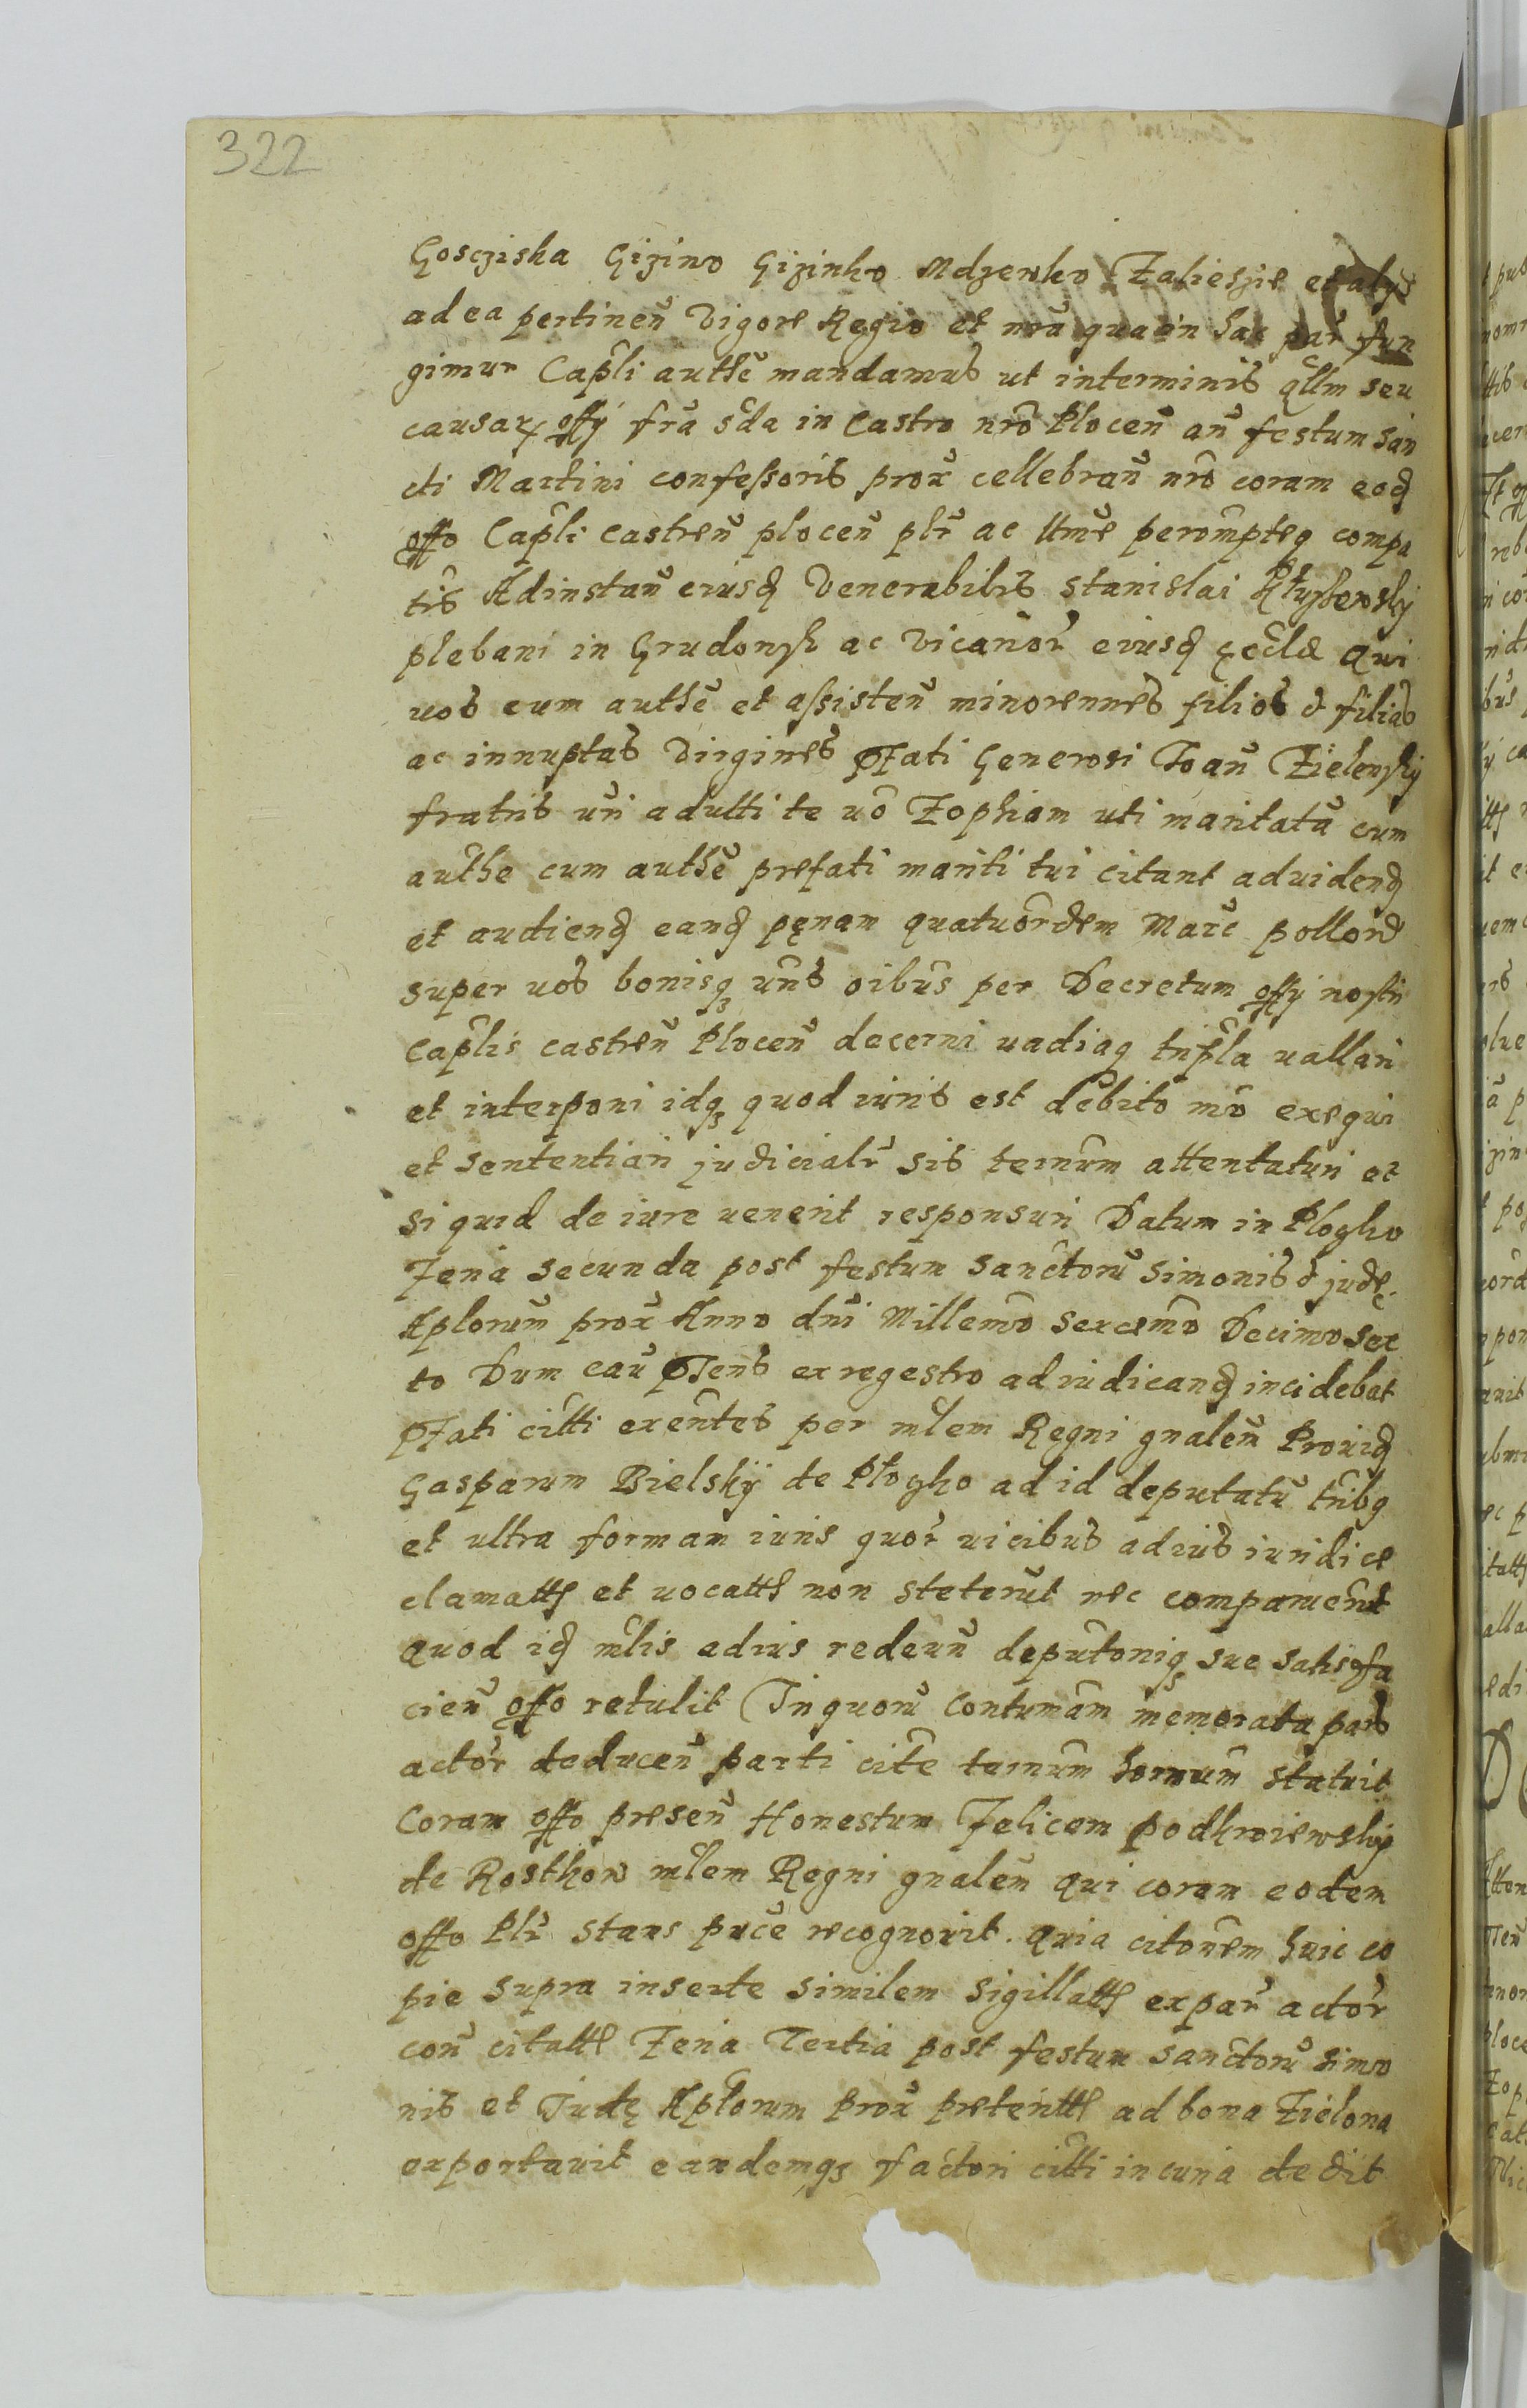 322
Goscziska Gizino Gizinko Mdzewko Zalieszie et alys
ad ea pertinen Vigore Regio et nra qua in hac par fun
gimur Capli authe mandamus ut interminis qllm seu
causar offy fra sda in Castro nro Plocen an festum San
cti Martini confessoris prox cellebran nro coram eod
offo Capli castren plocen plr ac ltme perompteq compa
tis Ad instan eiusd Venerabilis Stanislai
plebani in Grudonsk ac Vicarior eiusd ęcclae Qui
uos cum authe et assisten minorennes filios & filias
ac innuptas Virgines pfati Generosi Joan Zielensky
fratris uri adulti te uo Zophiam uti maritata cum
authe cum authe prefati mariti tui citant ad uidend
et audiend eand pęnam quatuordem Marc pollond
super uos bonisq uris oibus per Decretum offy nostri
Caplis castren Plocen decerni uadiaq tripla uallari
et interponi idq quod iuris est debito mo exequi
et sententiari judicialr sis ternum attentaturi et
si quid de iure uenerit responsuri Datum in Ploczko
Feria secunda post festum Sanctoru Simonis & judę
Aplorum prox Anno dni Millemo Sexcemo Decimo sex
to Dum cau pns ex regestro ad iudicand incidebat
pfati citti exentes per mlem Regni gnalem Prouid
Gasparum Bielskÿ de Ploczko ad id deputatu tribq
et ultra formam iuris quor uicibus ad ius iuridice
clamatts et uocatts non steterut nec comparuerut
Quod id mlis ad ius redeun deputoniq sue satisfa
cien offo retulit In quoru Contumam memorata pars
actor deducen parti cite ternum hornum statuit
Coram offo presen Honestum Felicem podkroiewsky
de Rosthow mlem Regni gnalem Qui coram eodem
offo Plr stans puce recognovit. Quia citonem huic co
pie supra inserte similem sigillatts ex par actor
con citatts Feria Tertia post festum Sanctoru Simo
nis et Judę Aplorum prox preteritts ad bona Zielona
exportauit eandemq factori citti in curia dedit